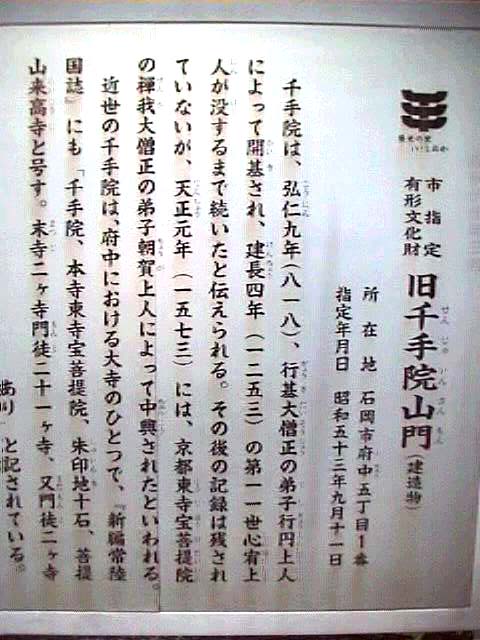 歴史の里
いしおか
市指定
有形文化財
旧千手院山門(建造物)
せんじゅいんさんもん
所在地 石岡市府中五丁目1番
指定年月日 昭和五十三年九月十一日
千手院は、弘仁九年(八一八)、行基大僧正の弟子行円上人
によって開基され、建長四年(一二五三)の第一一世心宥上
人が没するまで続いたと伝えられる。その後の記録は残され
ていないが、天正元年(一五七三)には、京都東寺宝菩提院
の禅我大僧正の弟子朝賀上人によって中興されたといわれる。
近世の千手院は、府中における大寺のひとつで、『新編常陸
国誌』にも「千手院、本寺東寺宝菩提院、朱印地十石、菩提
山来高寺と号す。末寺二ヶ寺門徒二十一ヶ寺、又門徒二ヶ寺
あり」と記されている。